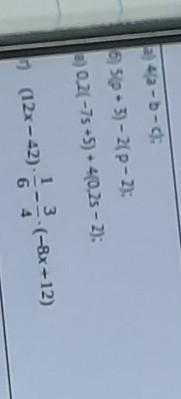 а) 4(a – b – c);
б) 5(p + 3) – 2( p – 2);
в) 0,2( –7s +5) + 4(0,2s – 2);
г) (12x – 42)·1/6 – 3/4·(–8x + 12)